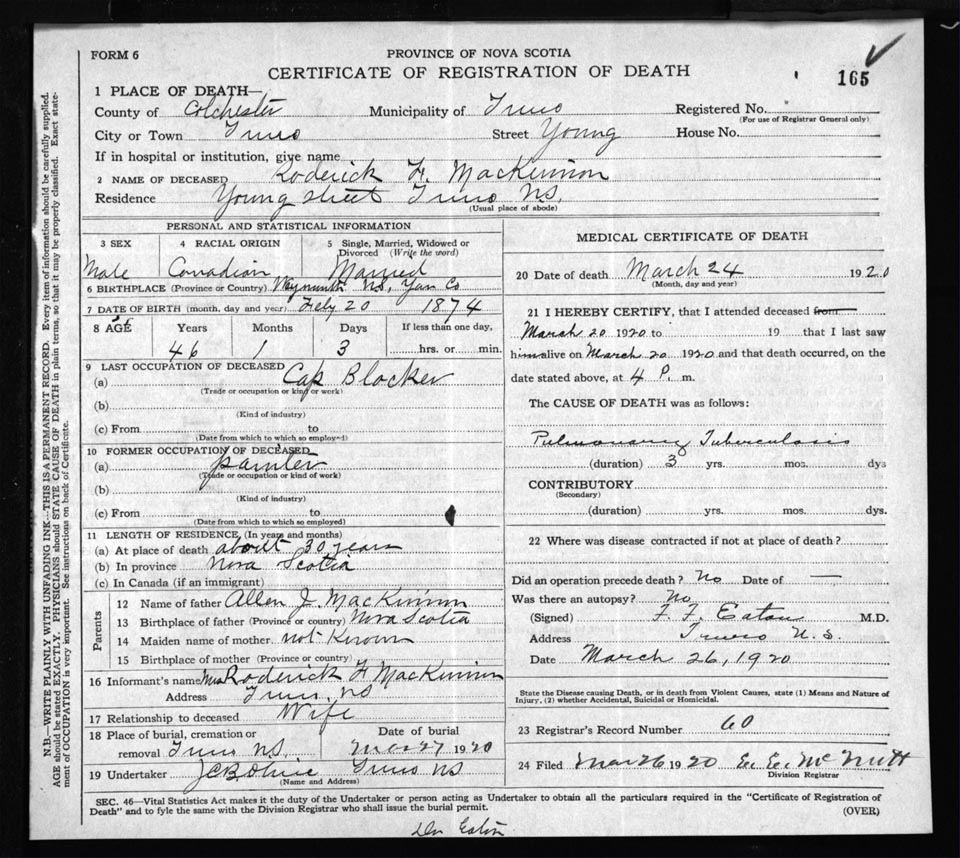 FORM 6
PROVINCE OF NOVA SCOTIA
CERTIFICATE OF REGISTRATION OF DEATH
165
1 PLACE OF DEATH—
County of Colchester Municipality of Truro Registered No.
(For use of Registrar General only)
City or Town Truro Street Young House No.
If in hospital or institution, give name
2 NAME OF DECEASED Roderick H. MacKinnon
Residence Young street Truro N.S.
(Usual place of abode)
PERSONAL AND STATISTICAL INFORMATION
3 SEX 4 RACIAL ORIGIN 5 Single, Married, Widowed or Divorced (Write the word)
Male Canadian Married
6 BIRTHPLACE (Province or Country) NS, Co
7 DATE OF BIRTH (month, day and year) Feby 20 1874
8 AGE Years Months Days If less than one day,
46 1 3 hrs. or min.
9 LAST OCCUPATION OF DECEASED
(a) Cap Blocker
(Trade or occupation or kind of work)
(b)
(Kind of industry)
(c) From to
(Date from which to which so employed)
10 FORMER OCCUPATION OF DECEASED
(a) painter
(Trade or occupation or kind of work)
(b)
(Kind of industry)
(c) From to
(Date from which to which so employed)
11 LENGTH OF RESIDENCE (In years and months)
(a) At place of death about 30 years
(b) In province Nova Scotia
(c) In Canada (if an immigrant)
Parents
12 Name of father Allen J. MacKinnon
13 Birthplace of father (Province or country) Nova Scotia
14 Maiden name of mother not Known
15 Birthplace of mother (Province or country)
16 Informant's name Mrs Roderick H MacKinnon
Address Truro, NS
17 Relationship to deceased Wife
18 Place of burial, cremation or Date of burial
removal Truro NS. Mar 27 1920
19 Undertaker Truro NS
(Name and Address)
MEDICAL CERTIFICATE OF DEATH
20 Date of death March 24 1920
(Month, day and year)
21 I HEREBY CERTIFY, that I attended deceased from
March 20 1920 to 19 that I last saw
him alive on March 20 1920 and that death occurred, on the
date stated above, at 4 P. m.
The CAUSE OF DEATH was as follows:
Pulmonary Tuberculosis
(duration) 3 yrs. mos. dys
CONTRIBUTORY
(Secondary)
(duration) yrs. mos. dys.
22 Where was disease contracted if not at place of death?
Did an operation precede death? No Date of —
Was there an autopsy? No
(Signed) F. F. Eaton M.D.
Address Truro N.S.
Date March 26, 1920
State the Disease causing Death, or in death from Violent Causes, state (1) Means and Nature of
Injury, (2) whether Accidental, Suicidal or Homicidal.
23 Registrar's Record Number 60
24 Filed Mar 26 1920 E. E. McNutt
Division Registrar
SEC. 46—Vital Statistics Act makes it the duty of the Undertaker or person acting as Undertaker to obtain all the particulars required in the "Certificate of Registration of
Death" and to fyle the same with the Division Registrar who shall issue the burial permit.
(OVER)
Dr Eaton
N.B.—WRITE PLAINLY WITH UNFADING INK—THIS IS A PERMANENT RECORD. Every item of information should be carefully supplied.
AGE should be stated EXACTLY. PHYSICIANS should STATE CAUSE OF DEATH in plain terms, so that it may be properly classified. Exact state-
ment of OCCUPATION is very important. See instructions on back of Certificate.